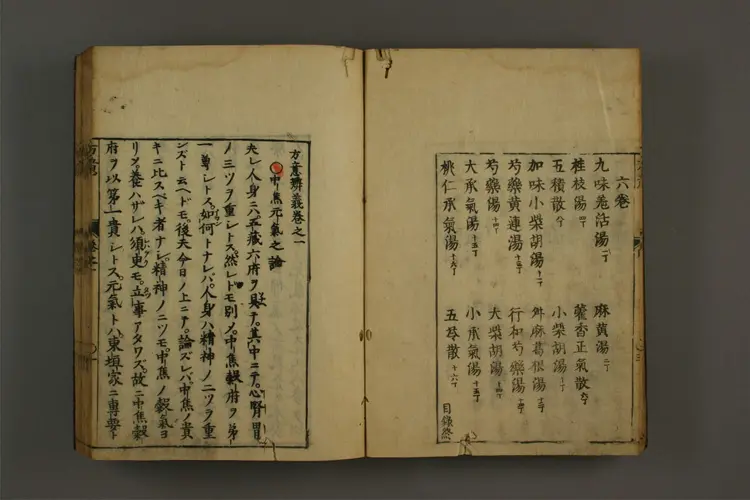 六卷
九味羗活湯一丁
麻黄湯二丁
桂枝湯四丁
藿香正氣散六丁
五積散八丁
小柴胡湯十丁
加味小柴胡湯十二丁
升麻葛根湯十三丁
芍藥黄連湯十三丁
行和芍藥湯十四丁
芍藥湯十四丁
大柴胡湯十四丁
大承氣湯十五丁
小承氣湯十五丁
桃仁承氣湯十六丁
五苓散十六丁
目錄終
方意辨義卷之一
中焦元氣之論
夫レ人身ニハ五藏六府ヲ具テ其中ニテ心腎胃
ノ三ツヲ重シトス然レトモ別メ中焦穀府ヲ第
一尊シトス如何トナレバ人身ハ精神ノ二ツヲ重
シズト云ヘドモ後夫今日ノ上ニテ論ズレバ中焦ノ貴
キニ比スベキ者ナシ精神ノ二ツモ中焦ノ穀氣ヨ
リメ養ハザレハ須臾モ立事アタワズ故ニ中焦穀
府ヲ以第一貴シトス元氣トハ東垣家ニ專要ト